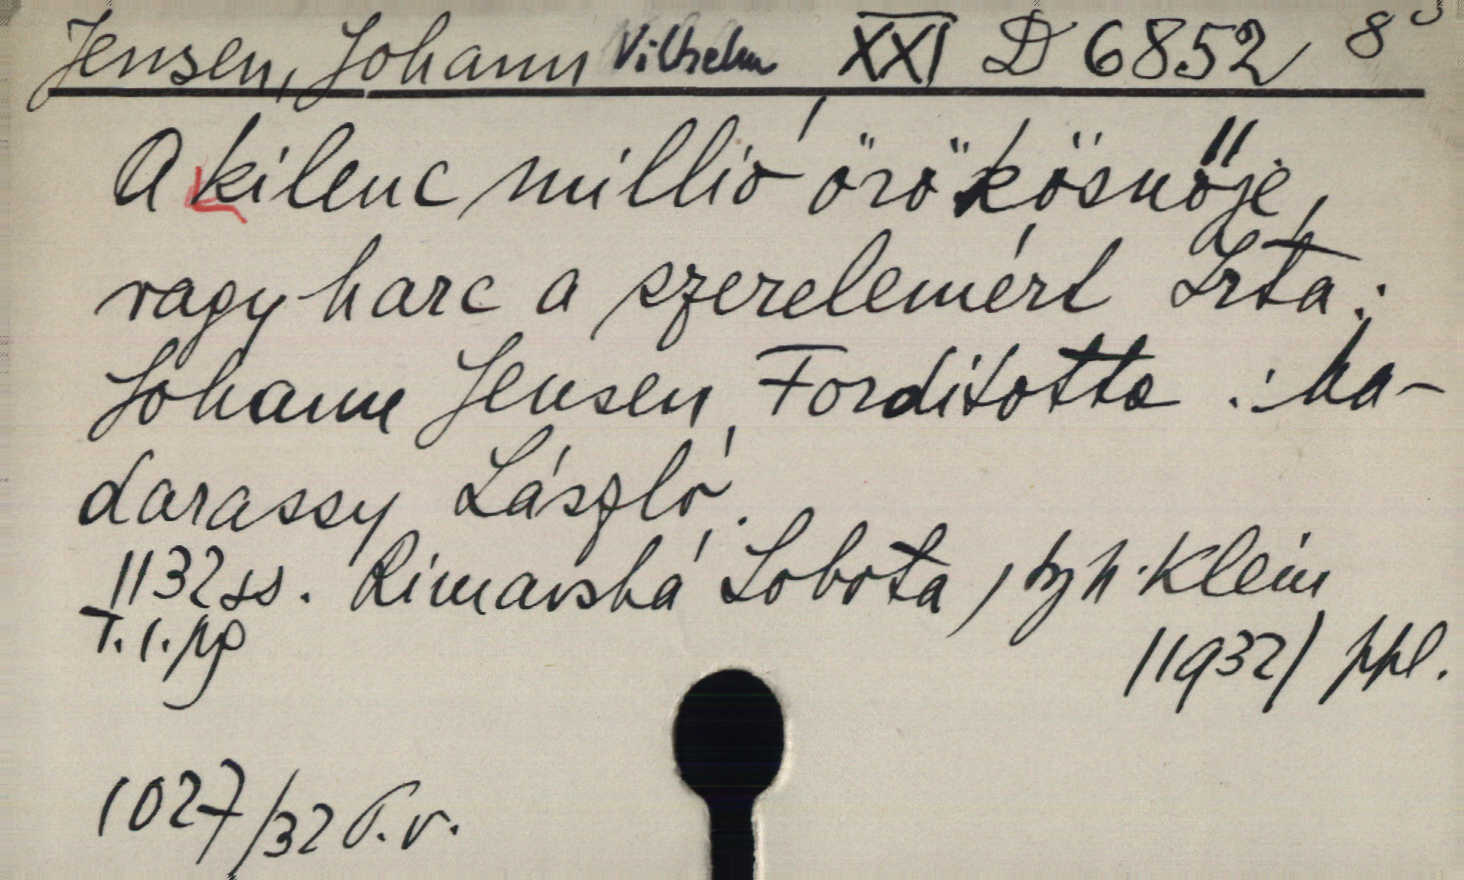 Jensen, Johann Vilhelm XXI D 6852 8°
A kilenc millió örökösnője,
vagy harc a szerelemért Írta:
Johann Jensen Fordította: Ma-
darassy László.
1132 ss. Rimavská Sobota, tyh. Klein
T. l. np
/1932/ ppl.
1027/32 T.v.